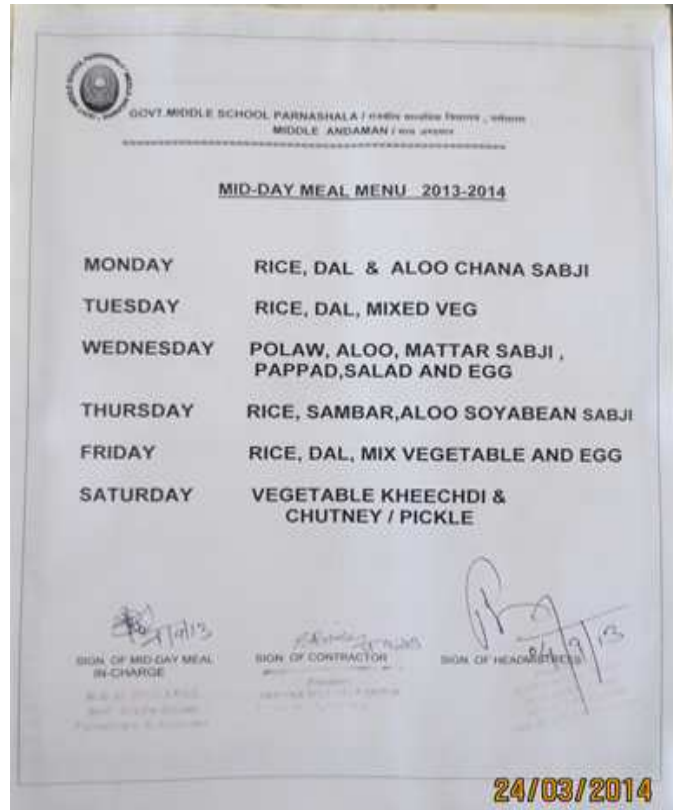 GOVT.MIDDLE SCHOOL PARNASHALA /
MIDDLE ANDAMAN /
MID-DAY MEAL MENU 2013-2014
MONDAY RICE, DAL & ALOO CHANA SABJI
TUESDAY RICE, DAL, MIXED VEG
WEDNESDAY POLAW, ALOO, MATTAR SABJI ,
PAPPAD,SALAD AND EGG
THURSDAY RICE, SAMBAR,ALOO SOYABEAN SABJI
FRIDAY RICE, DAL, MIX VEGETABLE AND EGG
SATURDAY VEGETABLE KHEECHDI &
CHUTNEY / PICKLE
SIGN OF MID-DAY MEAL SIGN OF CONTRACTOR SIGN OF HEADMISTRESS
IN-CHARGE
24/03/2014